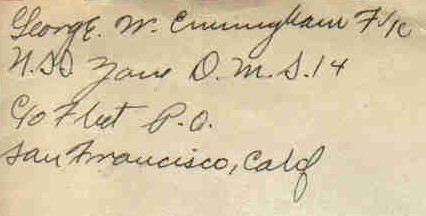 George. W. Cunningham F1/c
U.S.S Zane D.M.S.14
C/o Fleet P.O.
San Francisco, Calif